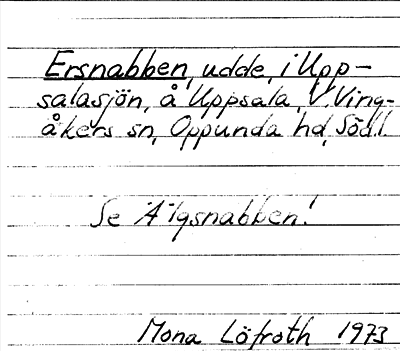 Ersnabben, udde, i Upp-
salasjön, å Uppsala, V. Ving-
åkers sn, Oppunda hd, Södl
Se Älgsnabben!
Mona Löfroth 1973